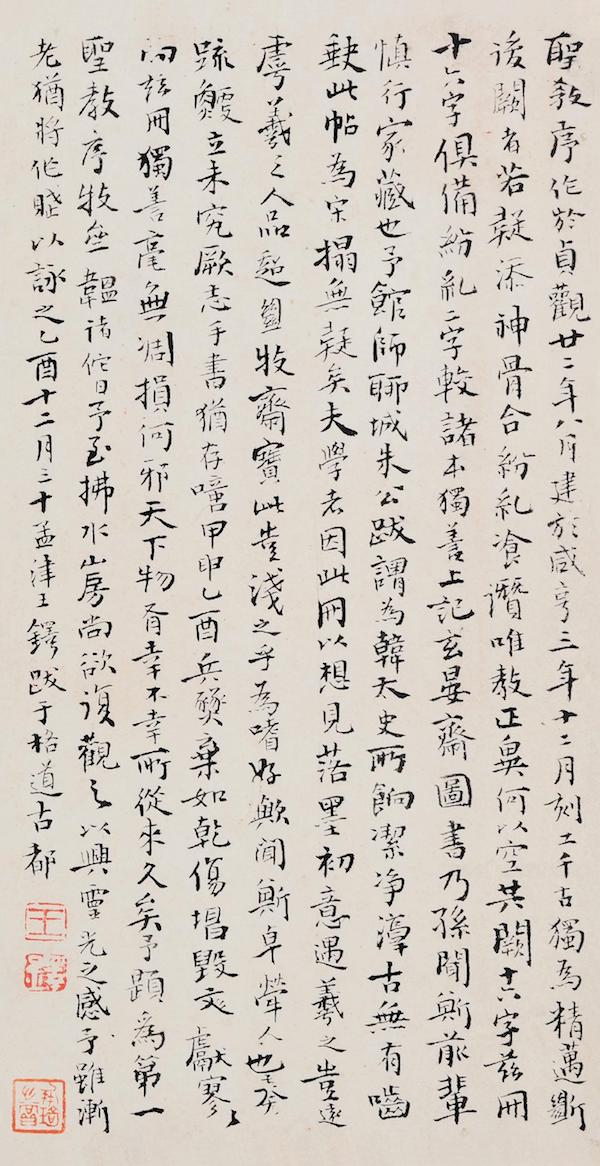 聖教序作於貞觀廿二年八月建於咸亨三年十二月刻工千古獨為精邁斷
後闕者若疑添神骨合紛糺飡潛唯教正與何以空其闕十六字茲冊
十六字俱備紛糺二字較諸本獨善上記玄晏齋圖書乃孫聞斯前輩
慎行家藏也予館師聊城朱公跋謂為韓太史所餉潔净渾古無有嚙
缺此帖為宋搨無疑矣夫學者因此冊以想見落墨初意遇羲之豈遠
虖羲之人品超邈牧齋寶此豈淺之乎為嗜好歟聞斯卓犖人也癸
疏鯁立未究厥志手書猶存噫甲申乙酉兵燹棄如乾傷塌毀文獻寥寥
向茲冊獨善毫無凋損何邪天下物胥幸不幸所從來久矣予題為第一
聖教序牧韞諸佗日予至拂水山房尚欲復觀之以興靈光之感予雖漸
老猶將作賦以詠之乙酉十二月三十孟津王鐸跋于格道古都
王鐸